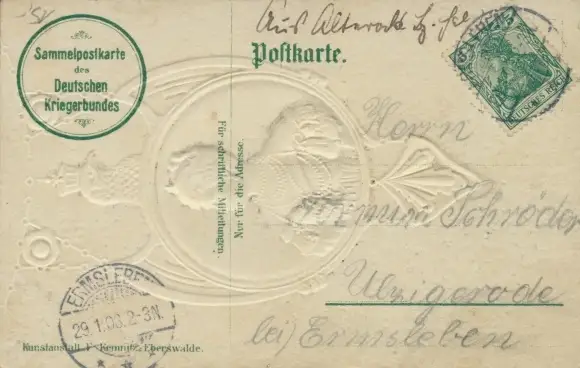 Sammelpostkarte
des
Deutschen
Kriegerbundes
Aus
Postkarte.
DEUTSCHES REICH
Für schriftliche Mitteilungen.
Nur für die Adresse.
Herrn
Schröder
Ulzigerode
bei Ermsleben
ERMSLEBEN
29.1.06.2-3N.
Kunstanstalt F. Kemnitz, Eberswalde.